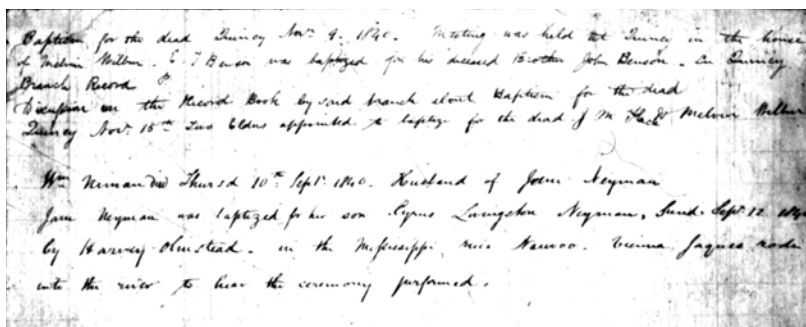 Baptism for the dead Quincy Nov. 9. 1840. Meeting was held at Quincy in the house
of Melvin Wilbur. E T Benson was baptized for his deceased Brother John Benson. On Quincy
Branch Record
on the Record Book by said branch about Baptism for the dead
Quincy Nov. 15th Two Elders appointed to baptize for the dead J M Melvin Wilbur
Wm Niman Died Thursd 10th Sept. 1840. Husband of Jane Neyman
Jane Neyman was baptized for her son Cyrus Livingston Neyman, Sund. Sept. 12 1840
by Harvey Olmstead. in the Mississippi, near Nauvoo. Vienna Jaques rode
into the river to hear the ceremony performed.